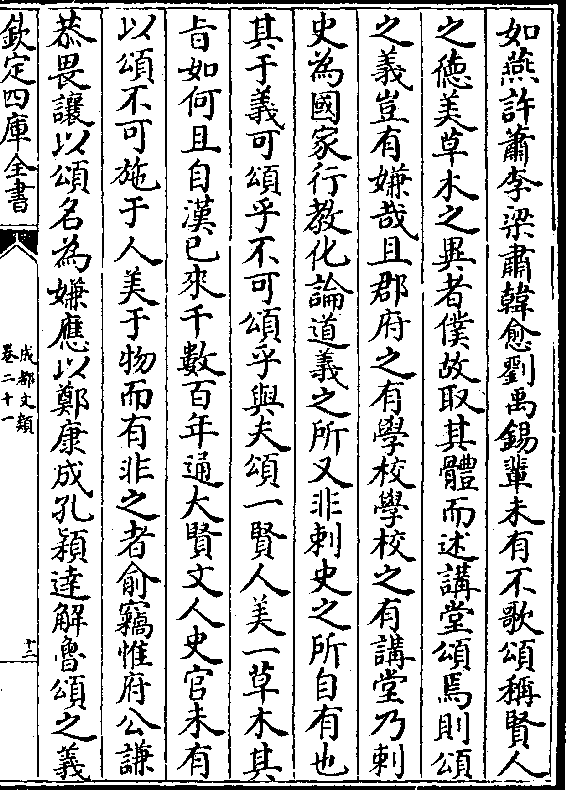 如燕許蕭李梁肅韓愈劉禹錫輩未有不歌頌稱賢人
之徳美草木之異者僕故取其體而述講堂頌焉則頌
之義豈有嫌哉且郡府之有學校學校之有講堂乃刺
史為國家行教化論道義之所又非刺史之所自有也
其于義可頌乎不可頌乎與夫頌一賢人美一草木其
旨如何且自漢已來千數百年通大賢文人史官未有
以頌不可施于人美于物而有非之者俞竊惟府公謙
恭畏讓以頌名為嫌應以鄭康成孔穎達解魯頌之義
欽定四庫全書
成都文類
卷二十一
十二